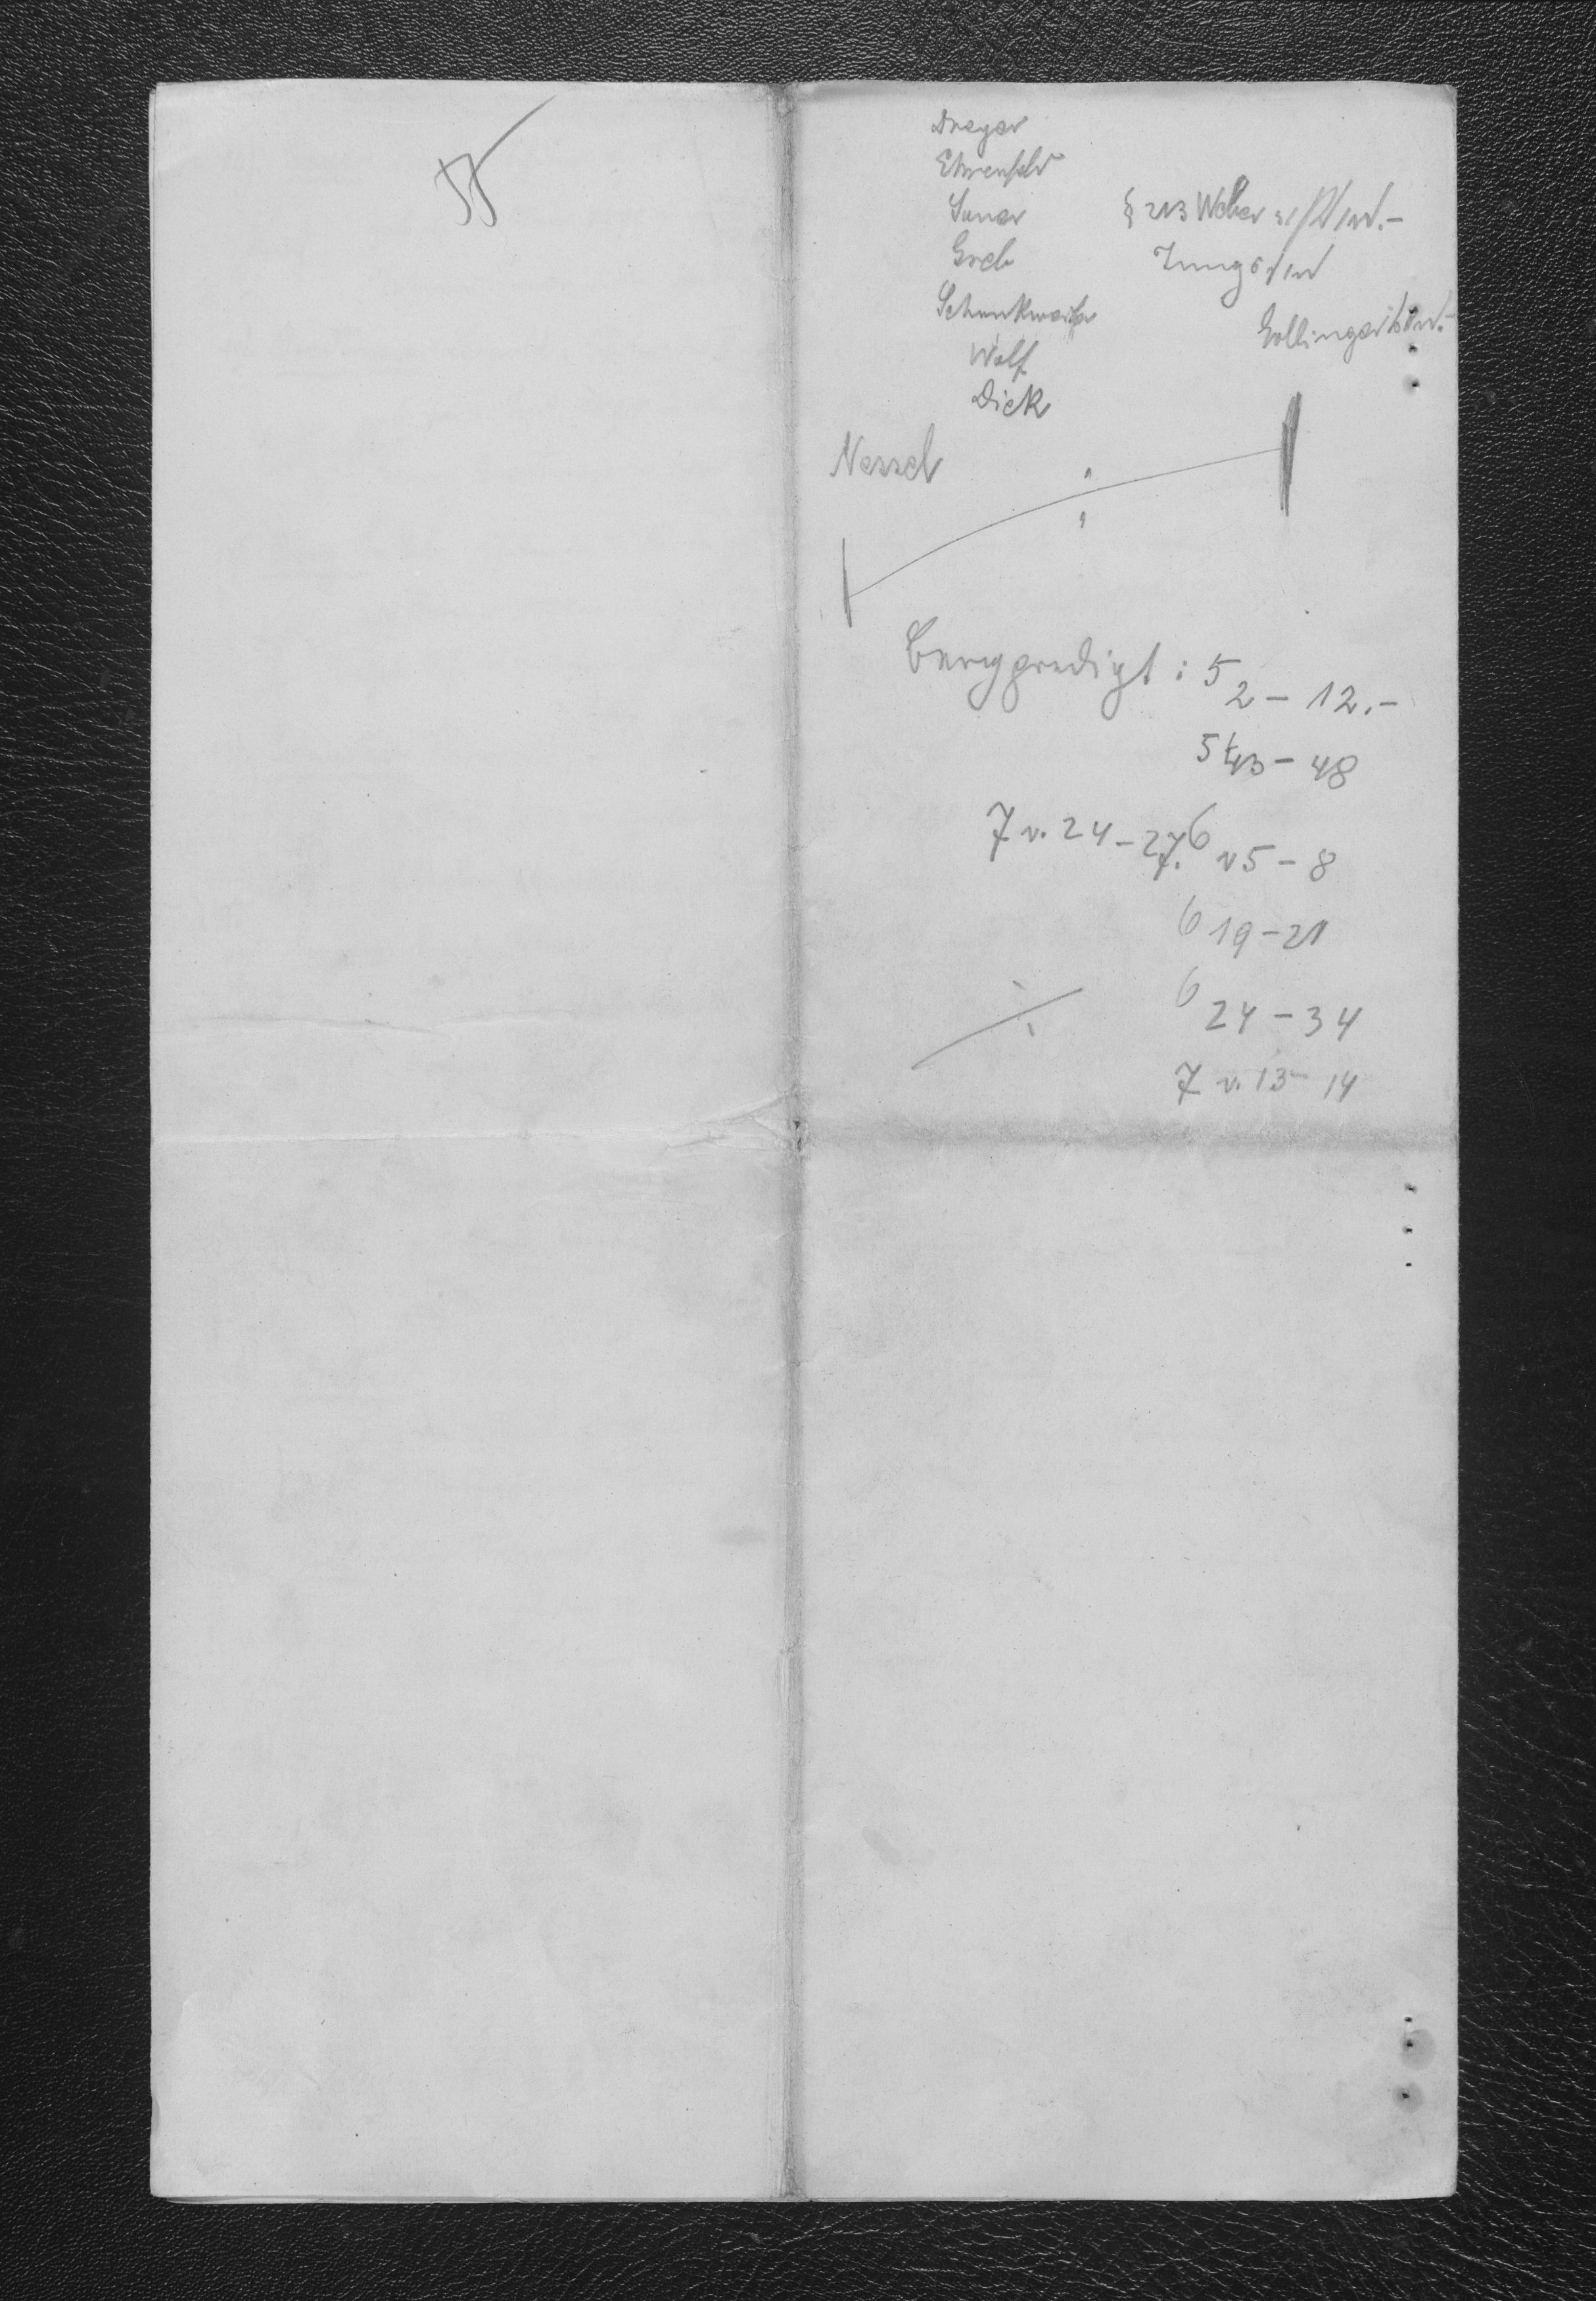 Dreyer
Ehrenfeld
Sauer
Greb
§ 213 Weber
Jung
Schenkweiler
Gollinger
Wolf
Dick
Nessel
Bergpredigt : 5 2 – 12.–
5 43 – 48
7 v. 24 – 27. 6 v 5 – 8
6 19 – 21
6 24 – 34
7 v. 13 – 14